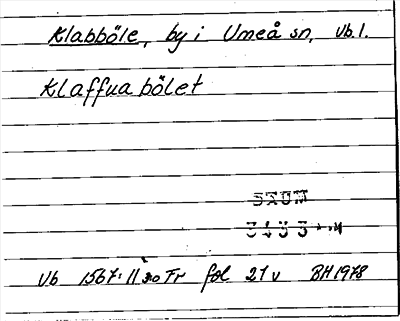 Klabböle, by i Umeå sn, Vb.l.
Klaffuabölet
DAUM
3453
Vb 1567:11 Fr fol 21 v BH 1978